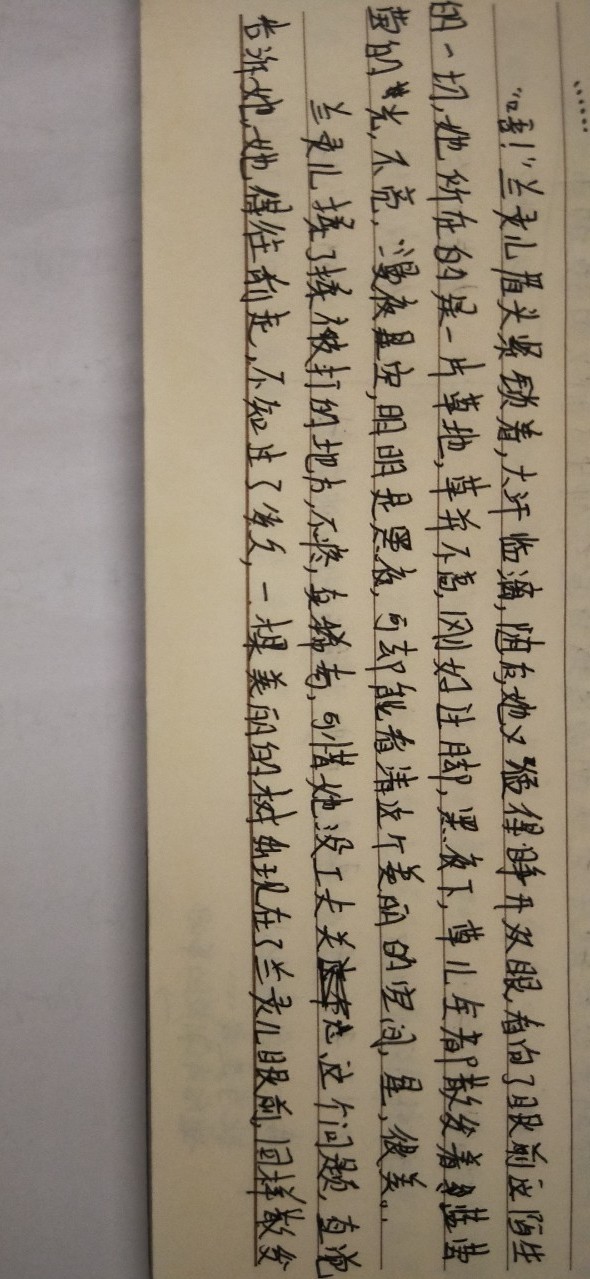 ……
“唔！”兰灵儿眉头紧锁着，大汗临滴，随后，她又猛得睁开双眼，看向了眼前这陌生
的一切，她所在的是一片草地，草并不高，刚好过脚，黑夜下，草儿全都散发着蓝蓝
的光，不亮，漫夜星空，明明是黑夜，可却能看清这个美丽的空间，星，很美。
兰灵儿揉了揉被打的地方，不疼，真稀奇，可惜她没工夫关这个问题，直觉
告诉她，她得往前走，不知过了多久，一棵美丽的树出现在了兰灵儿眼前，同样散发